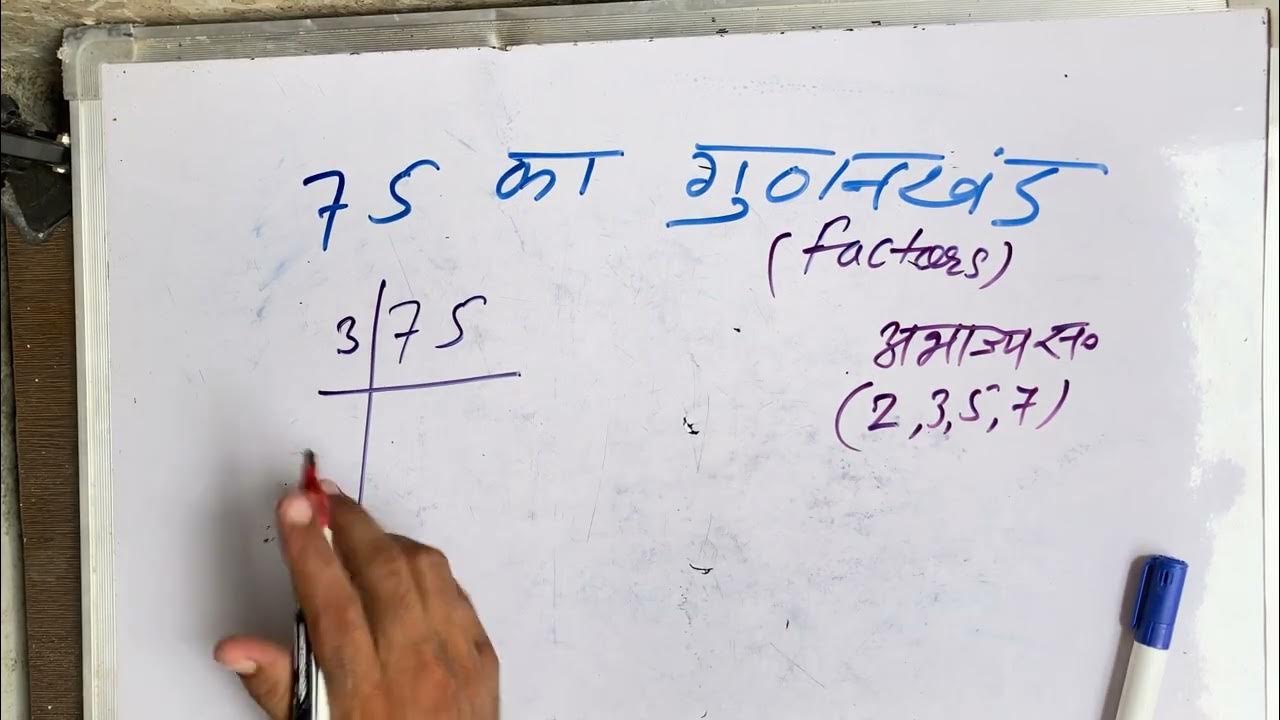 75 का गुणनखंड
(factors)
3 75
अभाज्य सं०
(2,3,5,7)